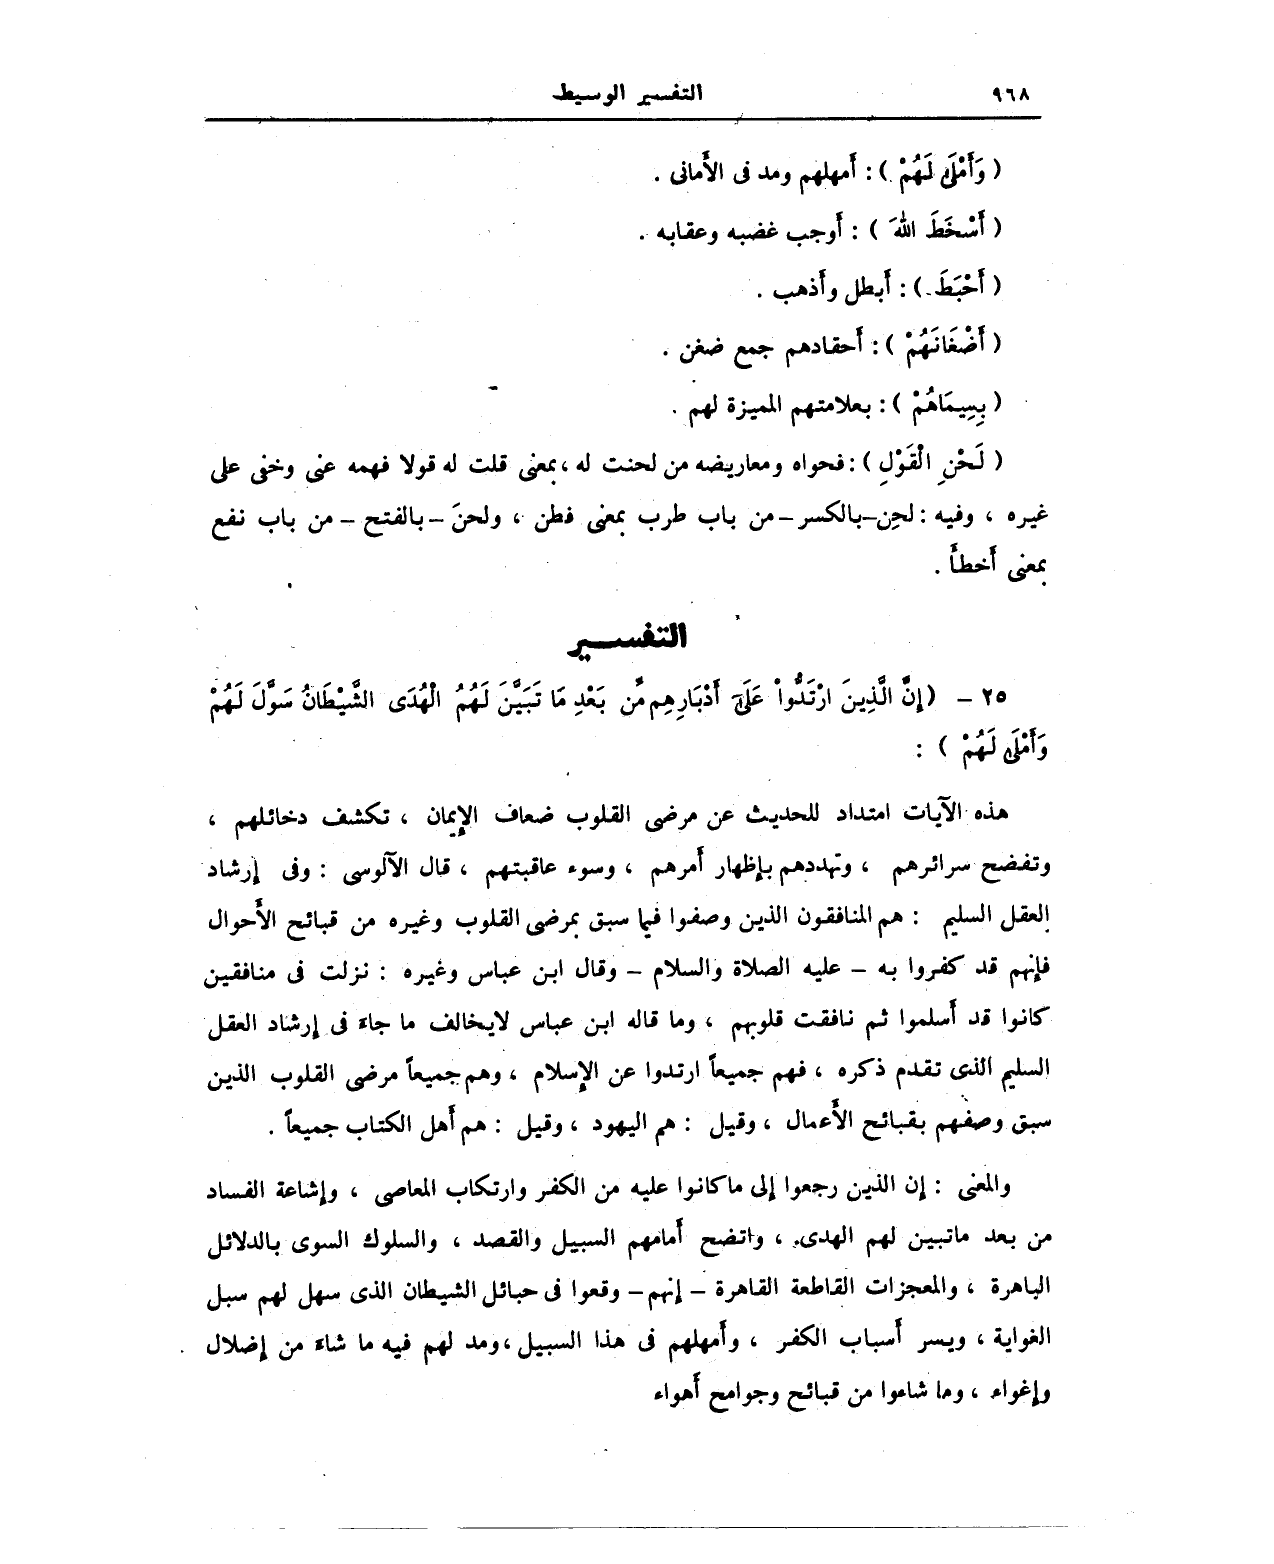 ٩٦٨
التفسير الوسيط
( وَأَمْلَىٰ لَهُمْ ) : أمهلهم ومد فى الأمانى .
( أَسْخَطَ اللهَ ) : أوجب غضبه وعقابه .
( أَحْبَطَ ) : أبطل وأذهب .
( أَضْغَانَهُمْ ) : أحقادهم جمع ضغن .
( بِسِيمَاهُمْ ) : بعلامتهم المميزة لهم .
( لَحْنِ الْقَوْلِ ) : فحواه ومعاريضه من لحنت له ، بمعنى قلت له قولا فهمه عنى وخفى على
غيره ، وفيه : لحِن – بالكسر – من باب طرب بمعنى فطن ، ولحنَ – بالفتح – من باب نفع
بمعنى أخطأ .
التفسـير
٢٥ – (إِنَّ الَّذِينَ ارْتَدُّواْ عَلَىٰٓ أَدْبَارِهِم مِّن بَعْدِ مَا تَبَيَّنَ لَهُمُ الْهُدَى الشَّيْطَانُ سَوَّلَ لَهُمْ
وَأَمْلَىٰ لَهُمْ ) :
هذه الآيات امتداد للحديث عن مرضى القلوب ضعاف الإيمان ، تكشف دخائلهم ،
وتفضح سرائرهم ، وتهددهم بإظهار أمرهم ، وسوء عاقبتهم ، قال الآلوسى : وفى إرشاد
العقل السليم : هم المنافقون الذين وصفوا فيما سبق بمرضى القلوب وغيره من قبائح الأحوال
فإنهم قد كفروا به – عليه الصلاة والسلام – وقال ابن عباس وغيره : نزلت فى منافقين
كانوا قد أسلموا ثم نافقت قلوبهم ، وما قاله ابن عباس لايخالف ما جاء فى إرشاد العقل
السليم الذى تقدم ذكره ، فهم جميعاً ارتدوا عن الإسلام ، وهم جميعاً مرضى القلوب الذين
سبق وصفهم بقبائح الأعمال ، وقيل : هم اليهود ، وقيل : هم أهل الكتاب جميعاً .
والمعنى : إن الذين رجعوا إلى ماكانوا عليه من الكفر وارتكاب المعاصى ، وإشاعة الفساد
من بعد ماتبين لهم الهدى ، واتضح أمامهم السبيل والقصد ، والسلوك السوى بالدلائل
الباهرة ، والمعجزات القاطعة القاهرة – إنهم – وقعوا فى حبائل الشيطان الذى سهل لهم سبل
الغواية ، ويسر أسباب الكفر ، وأمهلهم فى هذا السبيل ، ومد لهم فيه ما شاء من إضلال
وإغواء ، وما شاءوا من قبائح وجوامح أهواء